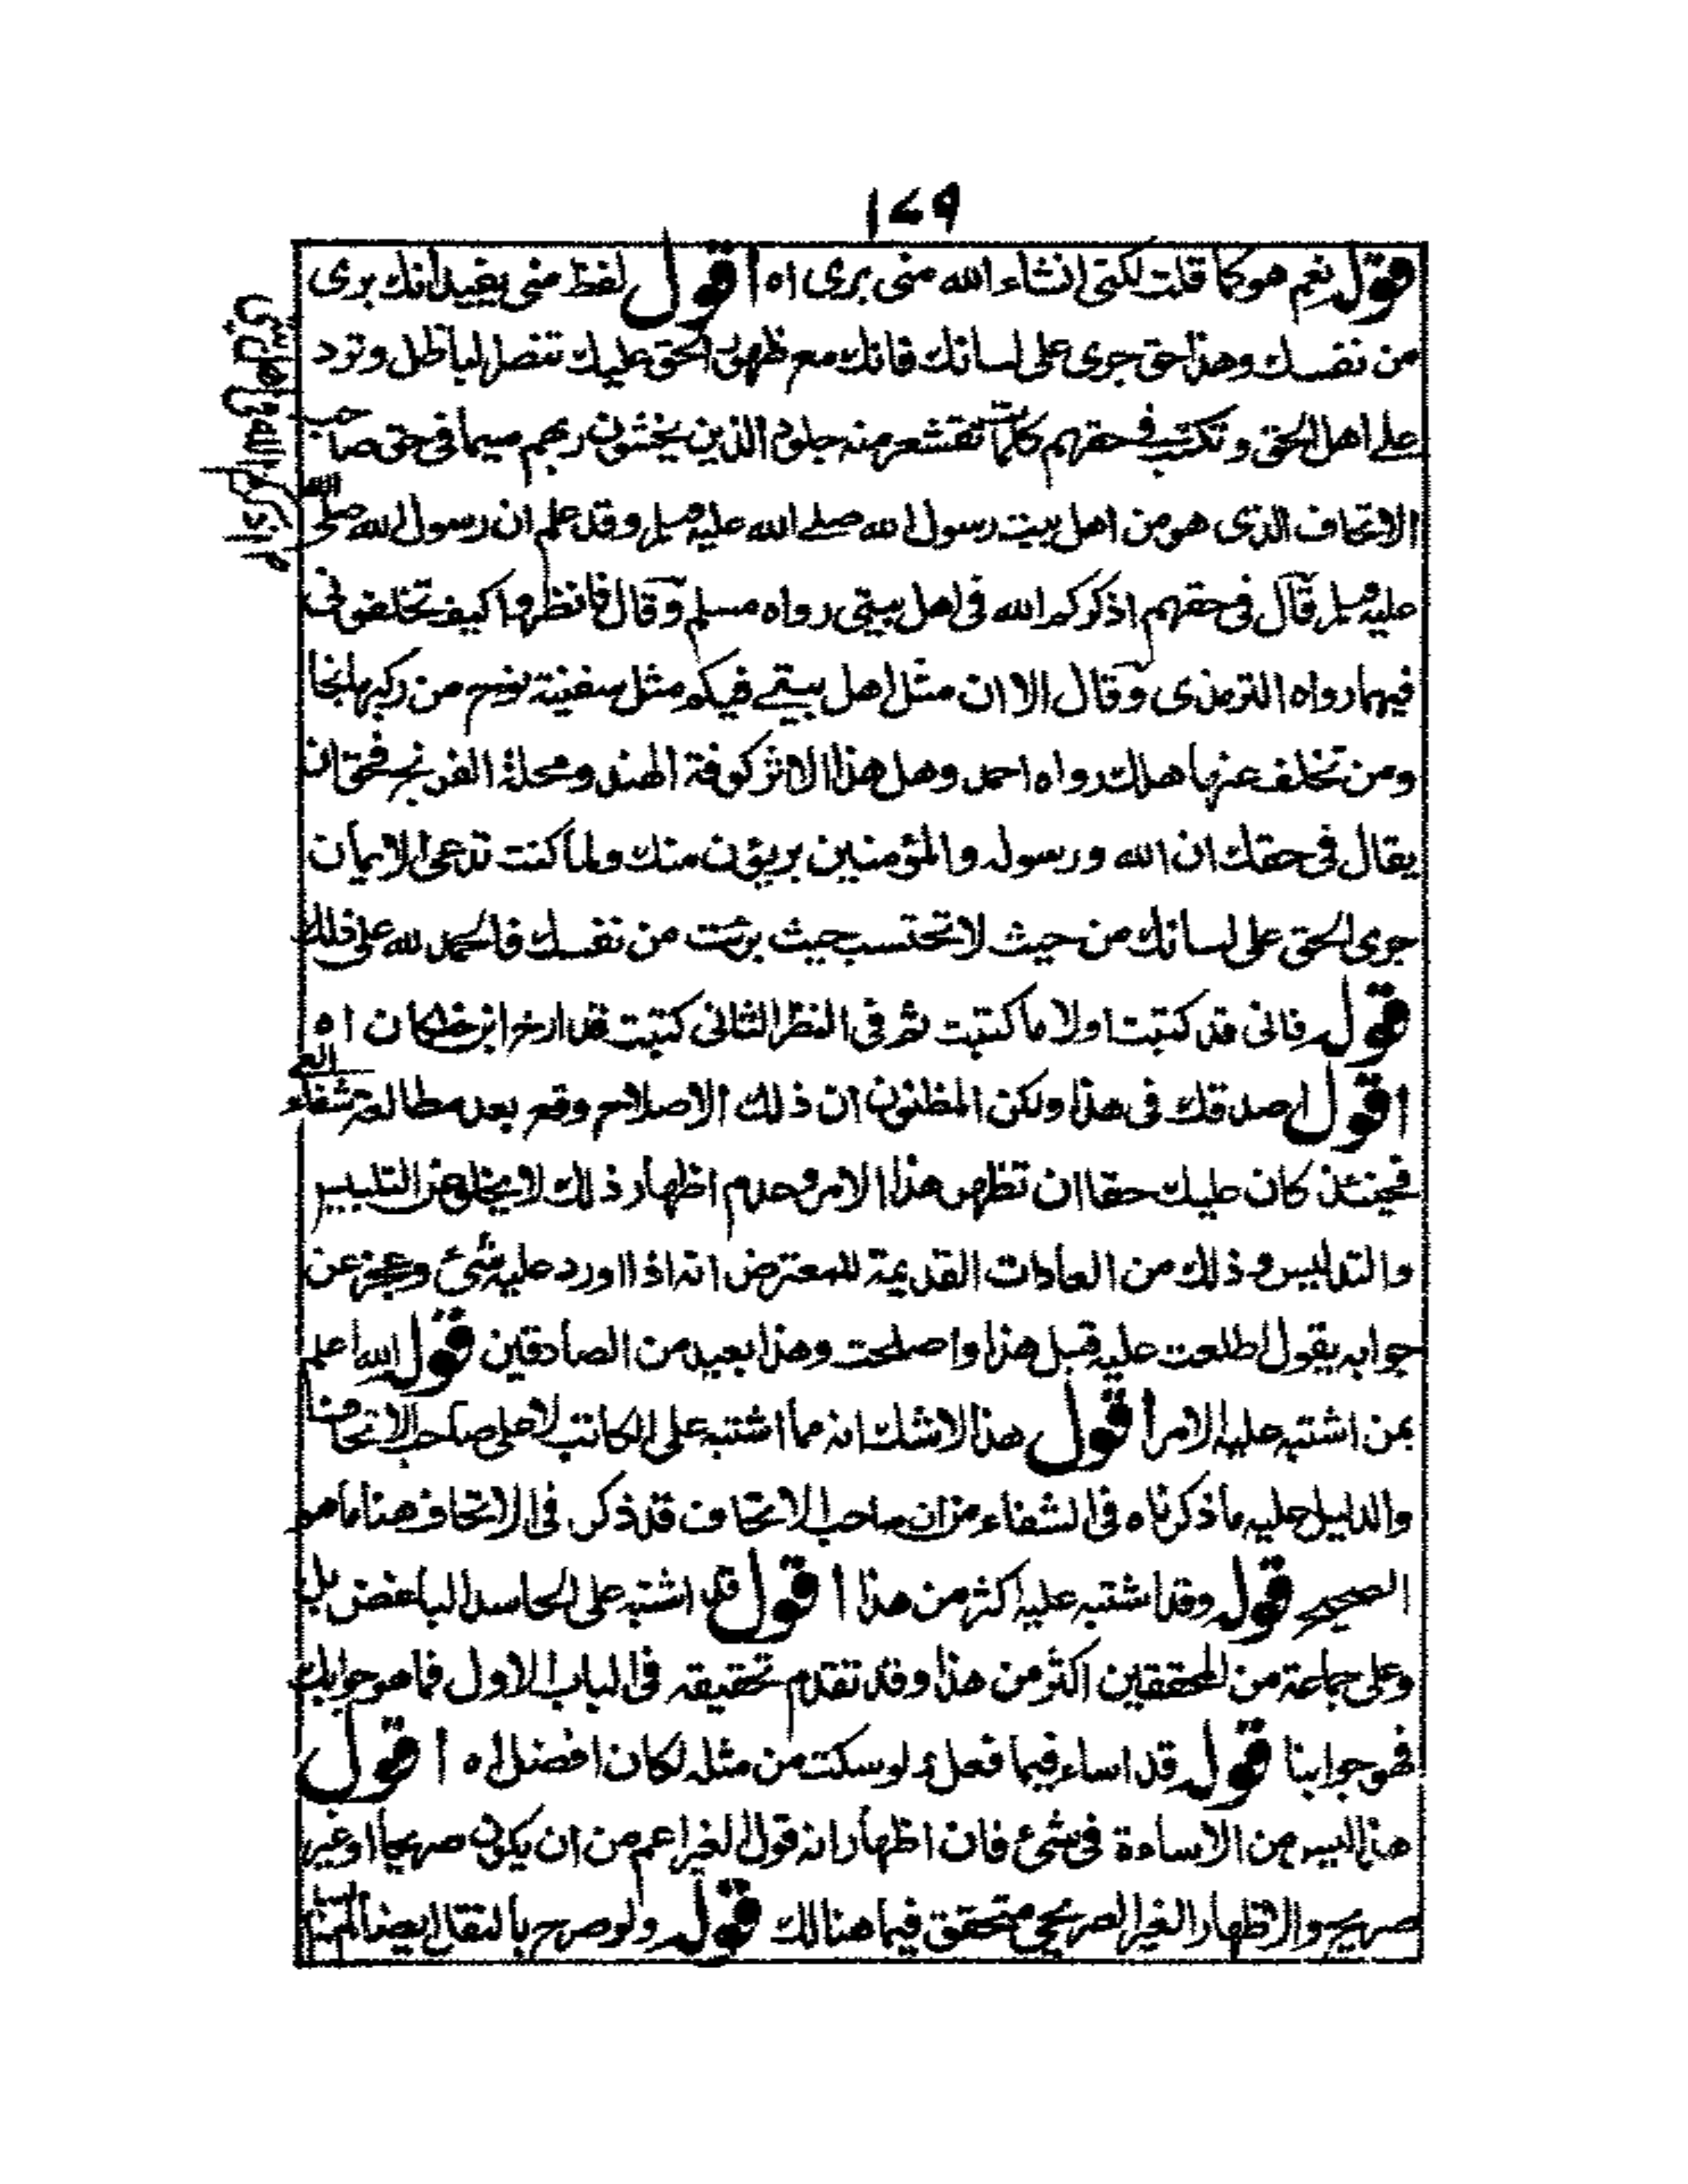 ١٧٩
قوله نعم هو كما قلت لكنى انشاء الله منى برى اه اقول لفظ منى يفيد انك برى
من نفسك وهذا حق جرى على لسانك فانك مع ظهور الحق عليك تنصر الباطل وترد
على اهل الحق وتكتب فى حقهم كلمات تقشعر منه جلود الذين يخشون ربهم سيما فى حق صاحب
الاتحاف الذى هو من اهل بيت رسول الله صلى الله عليه وسلم وقد علم ان رسول الله صلى الله
عليه وسلم قال فى حقهم اذكركم الله فى اهل بيتى رواه مسلم وقال فانظروا كيف تخلفونى
فيهما رواه الترمذى وقال الا ان مثل اهل بيتى فيكم مثل سفينة نوح من ركبها نجا
ومن تخلف عنها هلك رواه احمد وهل هذا الا اثر كوفة الهند ومحلة الفرنج فحق ان
يقال فى حقك ان الله ورسوله والمؤمنين بريؤن منك ولما كنت تدعى الايمان
جرى الحق على لسانك من حيث لا تحتسب حيث برئت من نفسك فالحمد لله على ذلك
قوله فانى قد كتبت اولا ما كتبت ثم فى النظر الثانى كتبت قد ارخ ابن خلكان اه
اقول اصدقك فى هذا ولكن المظنون ان ذلك الاصلاح وقع بعد مطالعة شفاء العى
فحينئذ كان عليك حقا ان تظهر هذا الامر وعدم اظهار ذلك لا يخلو عن التلبيس
والتدليس وذلك من العادات القديمة للمعترض انه اذا اورد عليه شئ وعجز عن
جوابه يقول اطلعت عليه قبل هذا واصلحت وهذا بعيد من الصادقين قوله الله اعلم
بمن اشتبه عليه الامر اقول هذا لا شك انه مما اشتبه على الكاتب لا على صاحب الاتحاف
والدليل عليه ما ذكرناه فى الشفاء من ان صاحب الاتحاف قد ذكر فى الاتحاف هنا ما هو
الصحيح قوله وقد اشتبه عليه اكثر من هذا اقول قد اشتبه على الحاسد الباغض بل
وعلى جماعة من المحققين اكثر من هذا وقد تقدم تحقيقه فى الباب الاول فما هو جوابك
فهو جوابنا قوله قد اساء فيما فعل ولو سكت من مثله لكان افضل اه اقول
هذا ليس من الاساءة فى شئ فان اظهار انه قول الغير اعم من ان يكون صريحا او غير
صريح والاظهار الغير الصريحى متحقق فيما هنالك قوله ولو صرح بالنقل ايضا